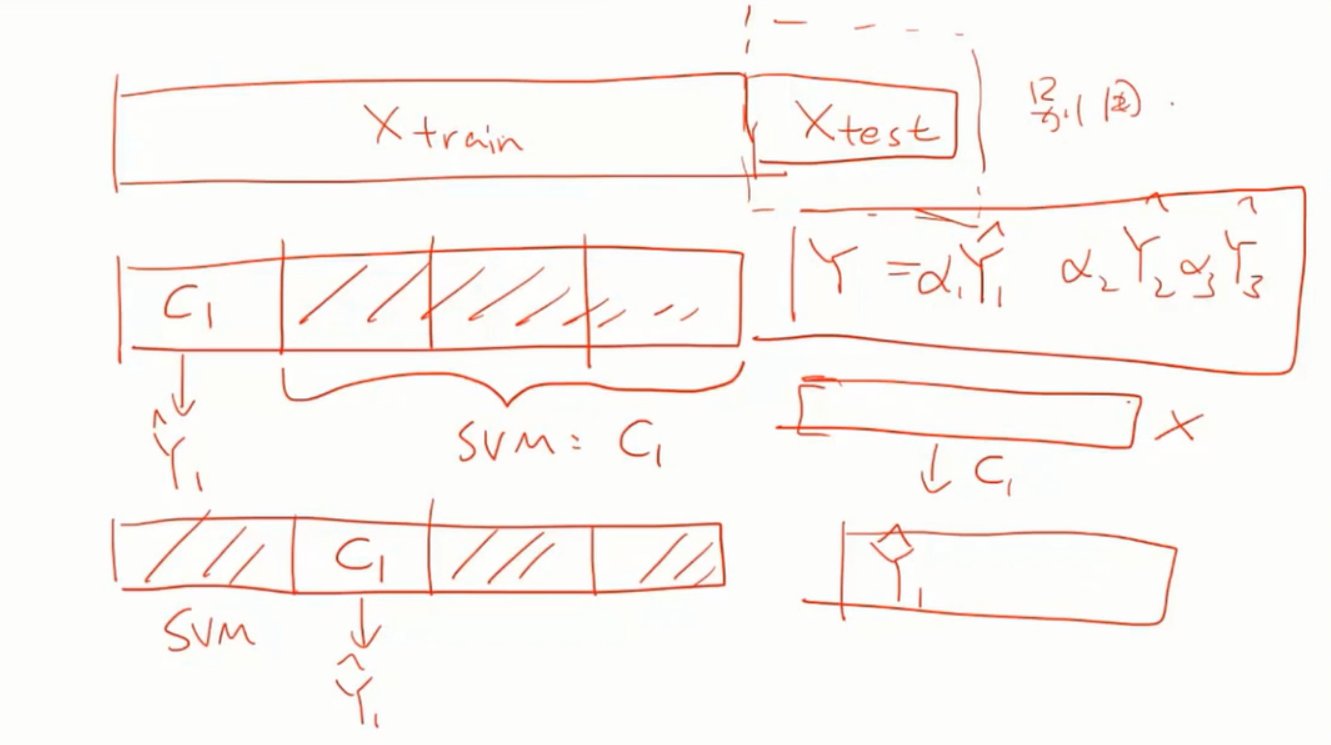 X train
X test
Y = α₁Ŷ₁ α₂Ŷ₂ α₃Ŷ₃
C₁
Ŷ₁
SVM: C₁
X
C₁
C₁
Ŷ₁
SVM
Ŷ₁